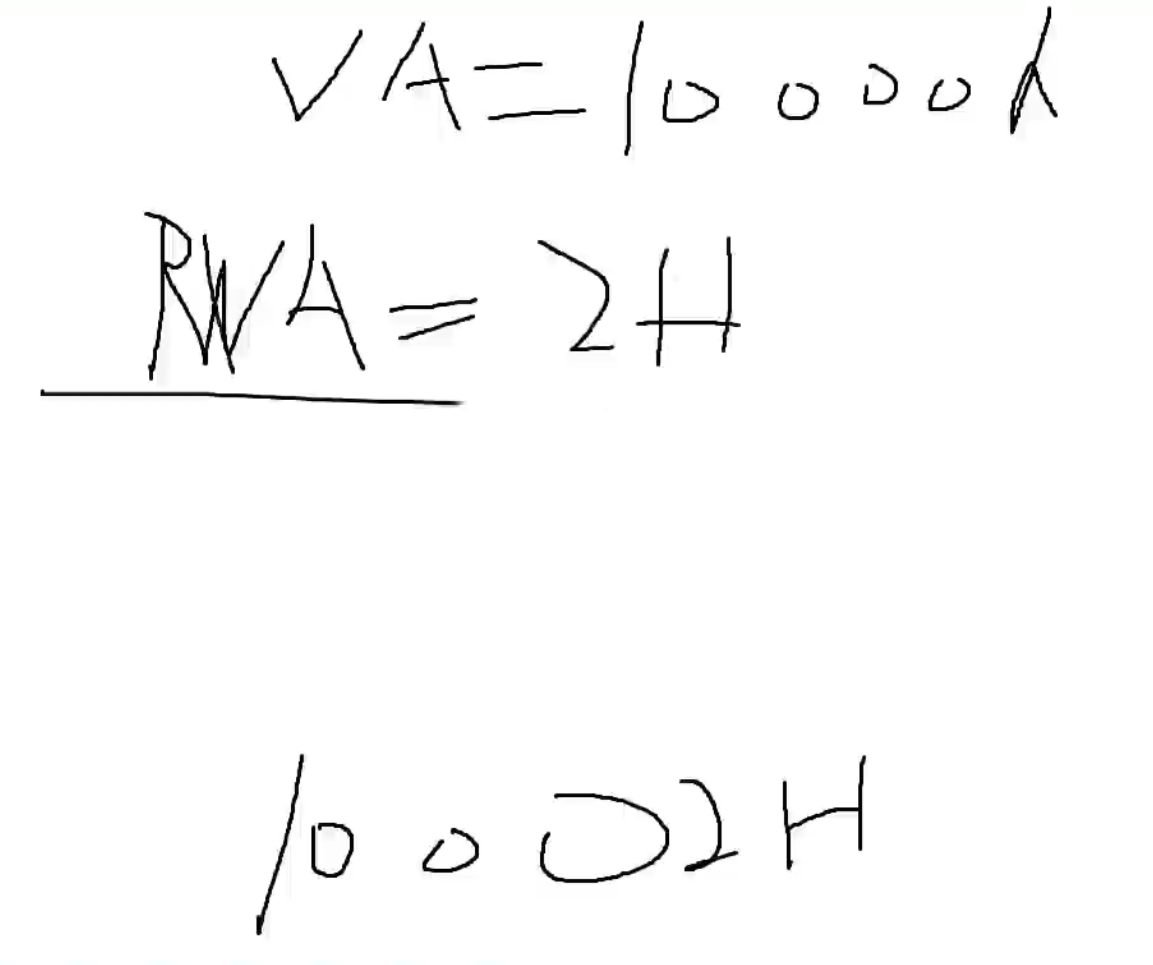 VA=10000H
RWA=2H
10002H